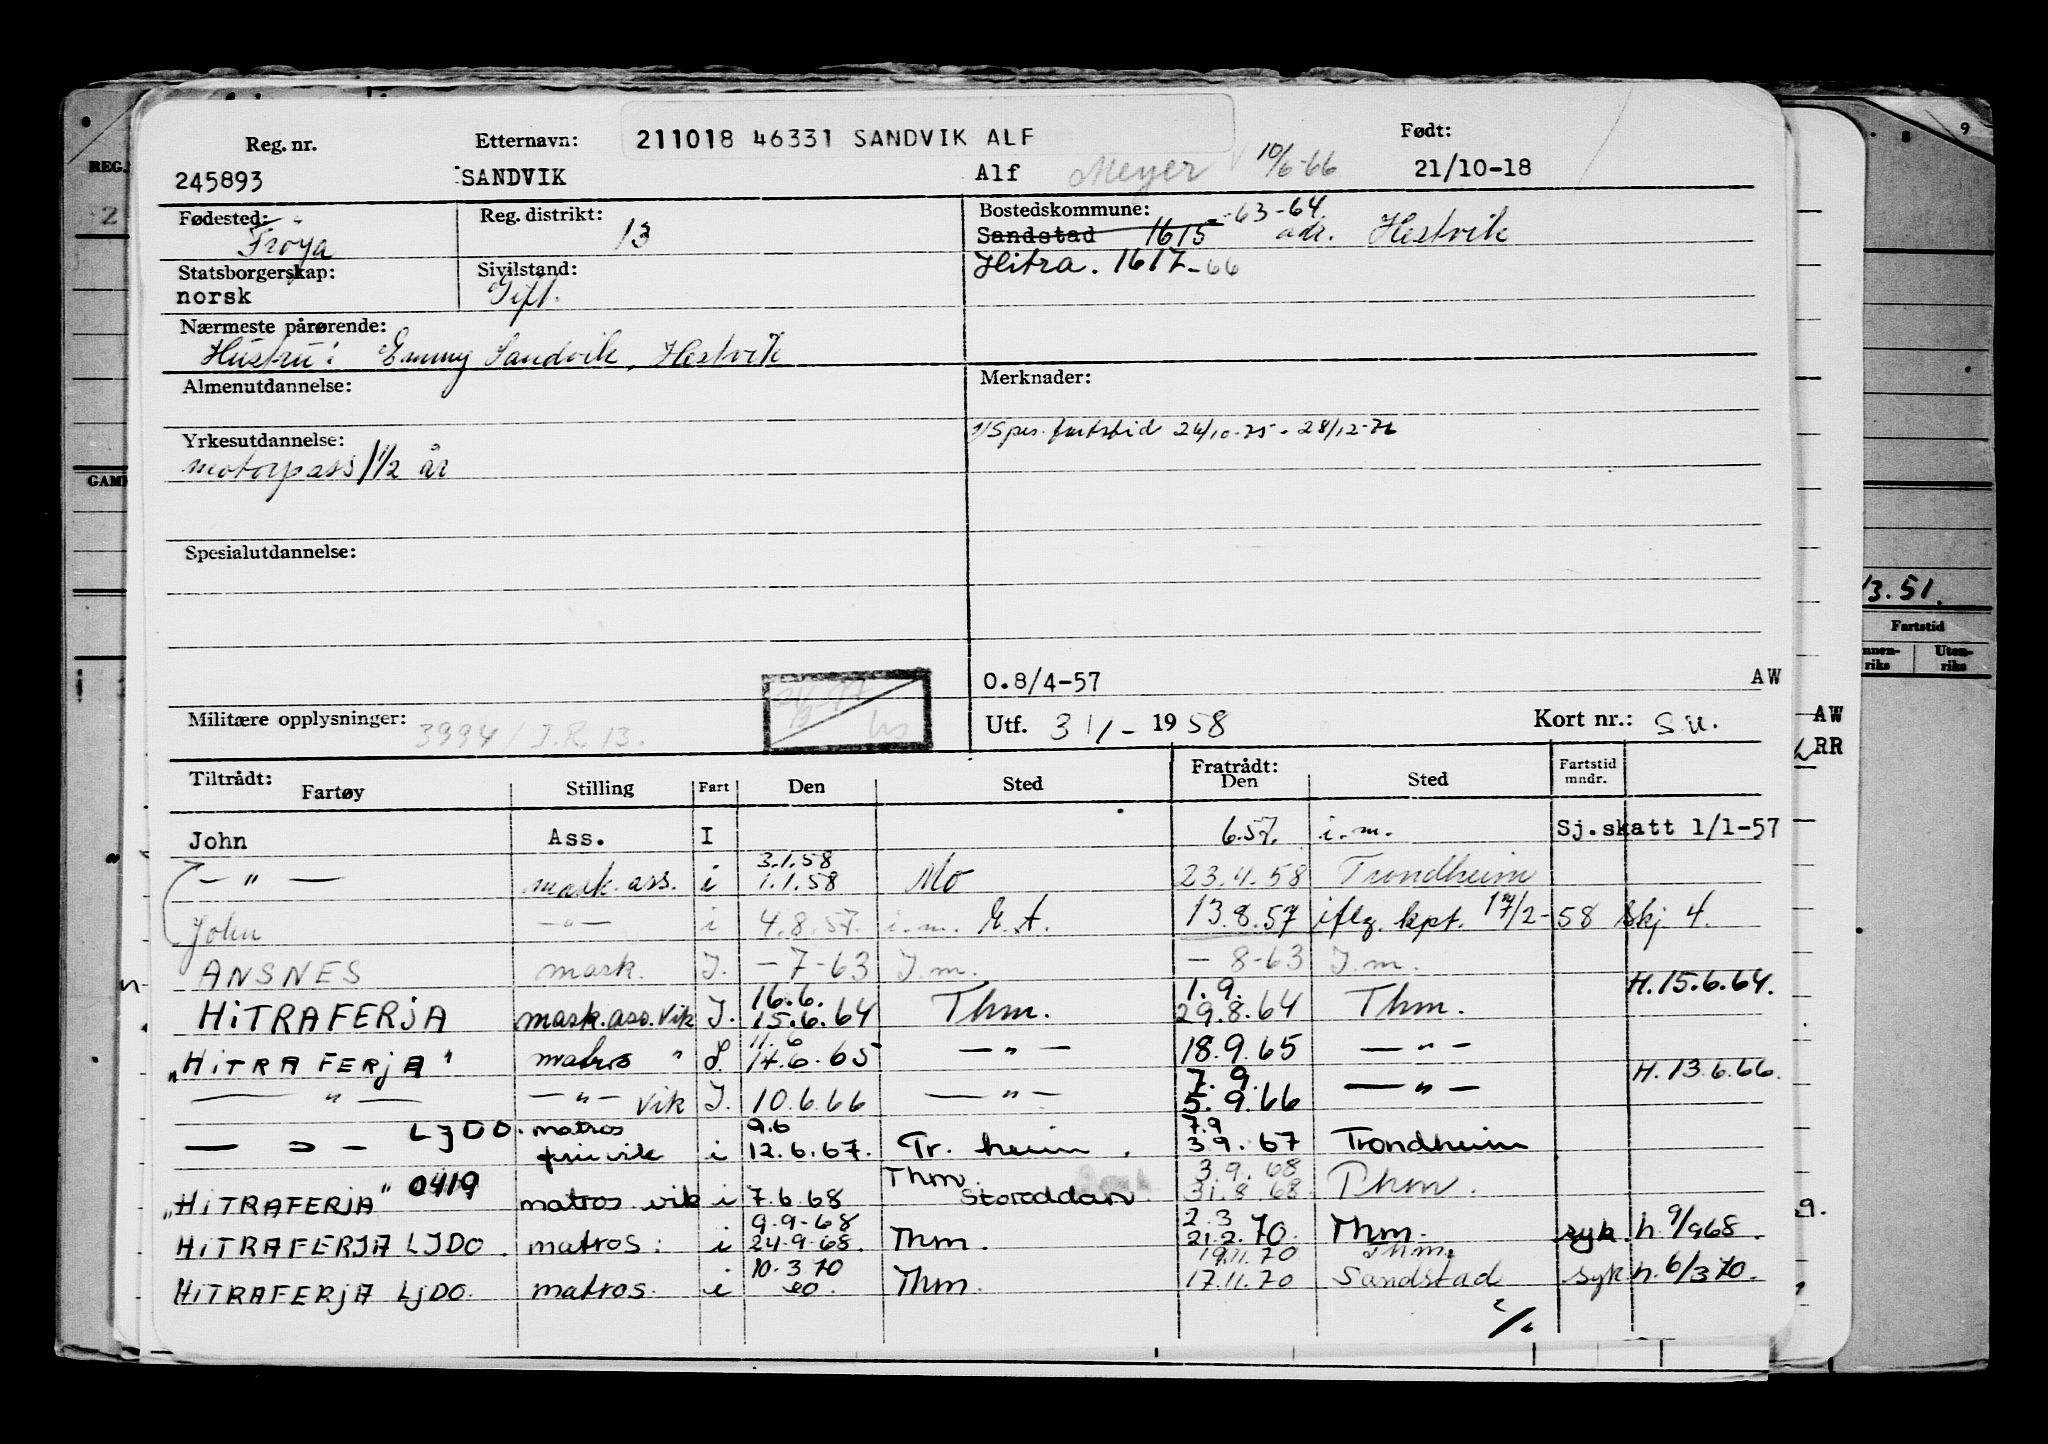 211018 46331 SANDVIK ALF
Reg. nr. Etternavn: Født:
245893 SANDVIK Alf Meyer 10/6-66 21/10-18
Fødested: Reg. distrikt: Bostedskommune:
Frøya 13 Sandstad 1615 -63-64. adr. Hestvik
Statsborgerskap: Sivilstand: Hitra. 1617-66
norsk Gift.
Nærmeste pårørende:
Hustru: Emmy Sandvik, Hestvik
Almenutdannelse: Merknader:
Spes. fartstid 24/10-75 - 28/12-76
Yrkesutdannelse:
motorpass 1 1/2 år
Spesialutdannelse:
O.8/4-57 AW
Militære opplysninger: 3994 / I.R. 13. Utf. 3/1- 1958 Kort nr.: S.U.
Tiltrådt: Fratrådt: Fartstid
Fartøy Stilling Fart Den Sted Den Sted mndr.
John Ass. I 6.57. i.m. Sj.skatt 1/1-57
3.1.58
— " — mask. ass. i 1.1.58 Mo 23.4.58 Trondheim
John — " — i 4.8.57. i.m. E.A. 13.8.57 iflg. kpt. 17/2-58 Skj. 4.
ANSNES mask. I. - 7-63 I.m. - 8-63 I.m.
16.6. 1.9. H.15.6.64.
HiTRAFERjA mask.ass. vik I. 15.6.64 Thm. 29.8.64 Thm.
11.6
"HiTRA FERjA" matros " I. 14.6.65 — " — 18.9.65 — " —
7.9. H.13.6.66.
— " — — " — vik I. 10.6.66 — " — 5.9.66 — " —
LJDO. matros 9.6 7.9
— " — vik i 12.6.67. Tr. heim. 3.9.67 Trondheim
0419 Thm. 3.9.68
"HiTRAFERJA" matros vik i 7.6.68 Storoddan 31.8.68 Thm.
9-9-68 2.3
HiTRAFERJA LJDO. matros. i 24-9-68. Thm. 21.2.70 Thm. syk. h. 9/968.
10.3.70 19.11.70 Thm.
HiTRAFERjA LjDO. matros. i Thm. 17.11.70 Sandstad syk. h. 6/370.
REG.
2
GAML
9
13.51.
Fartstid
Innen-riks Uten-riks
AW
RR
9.